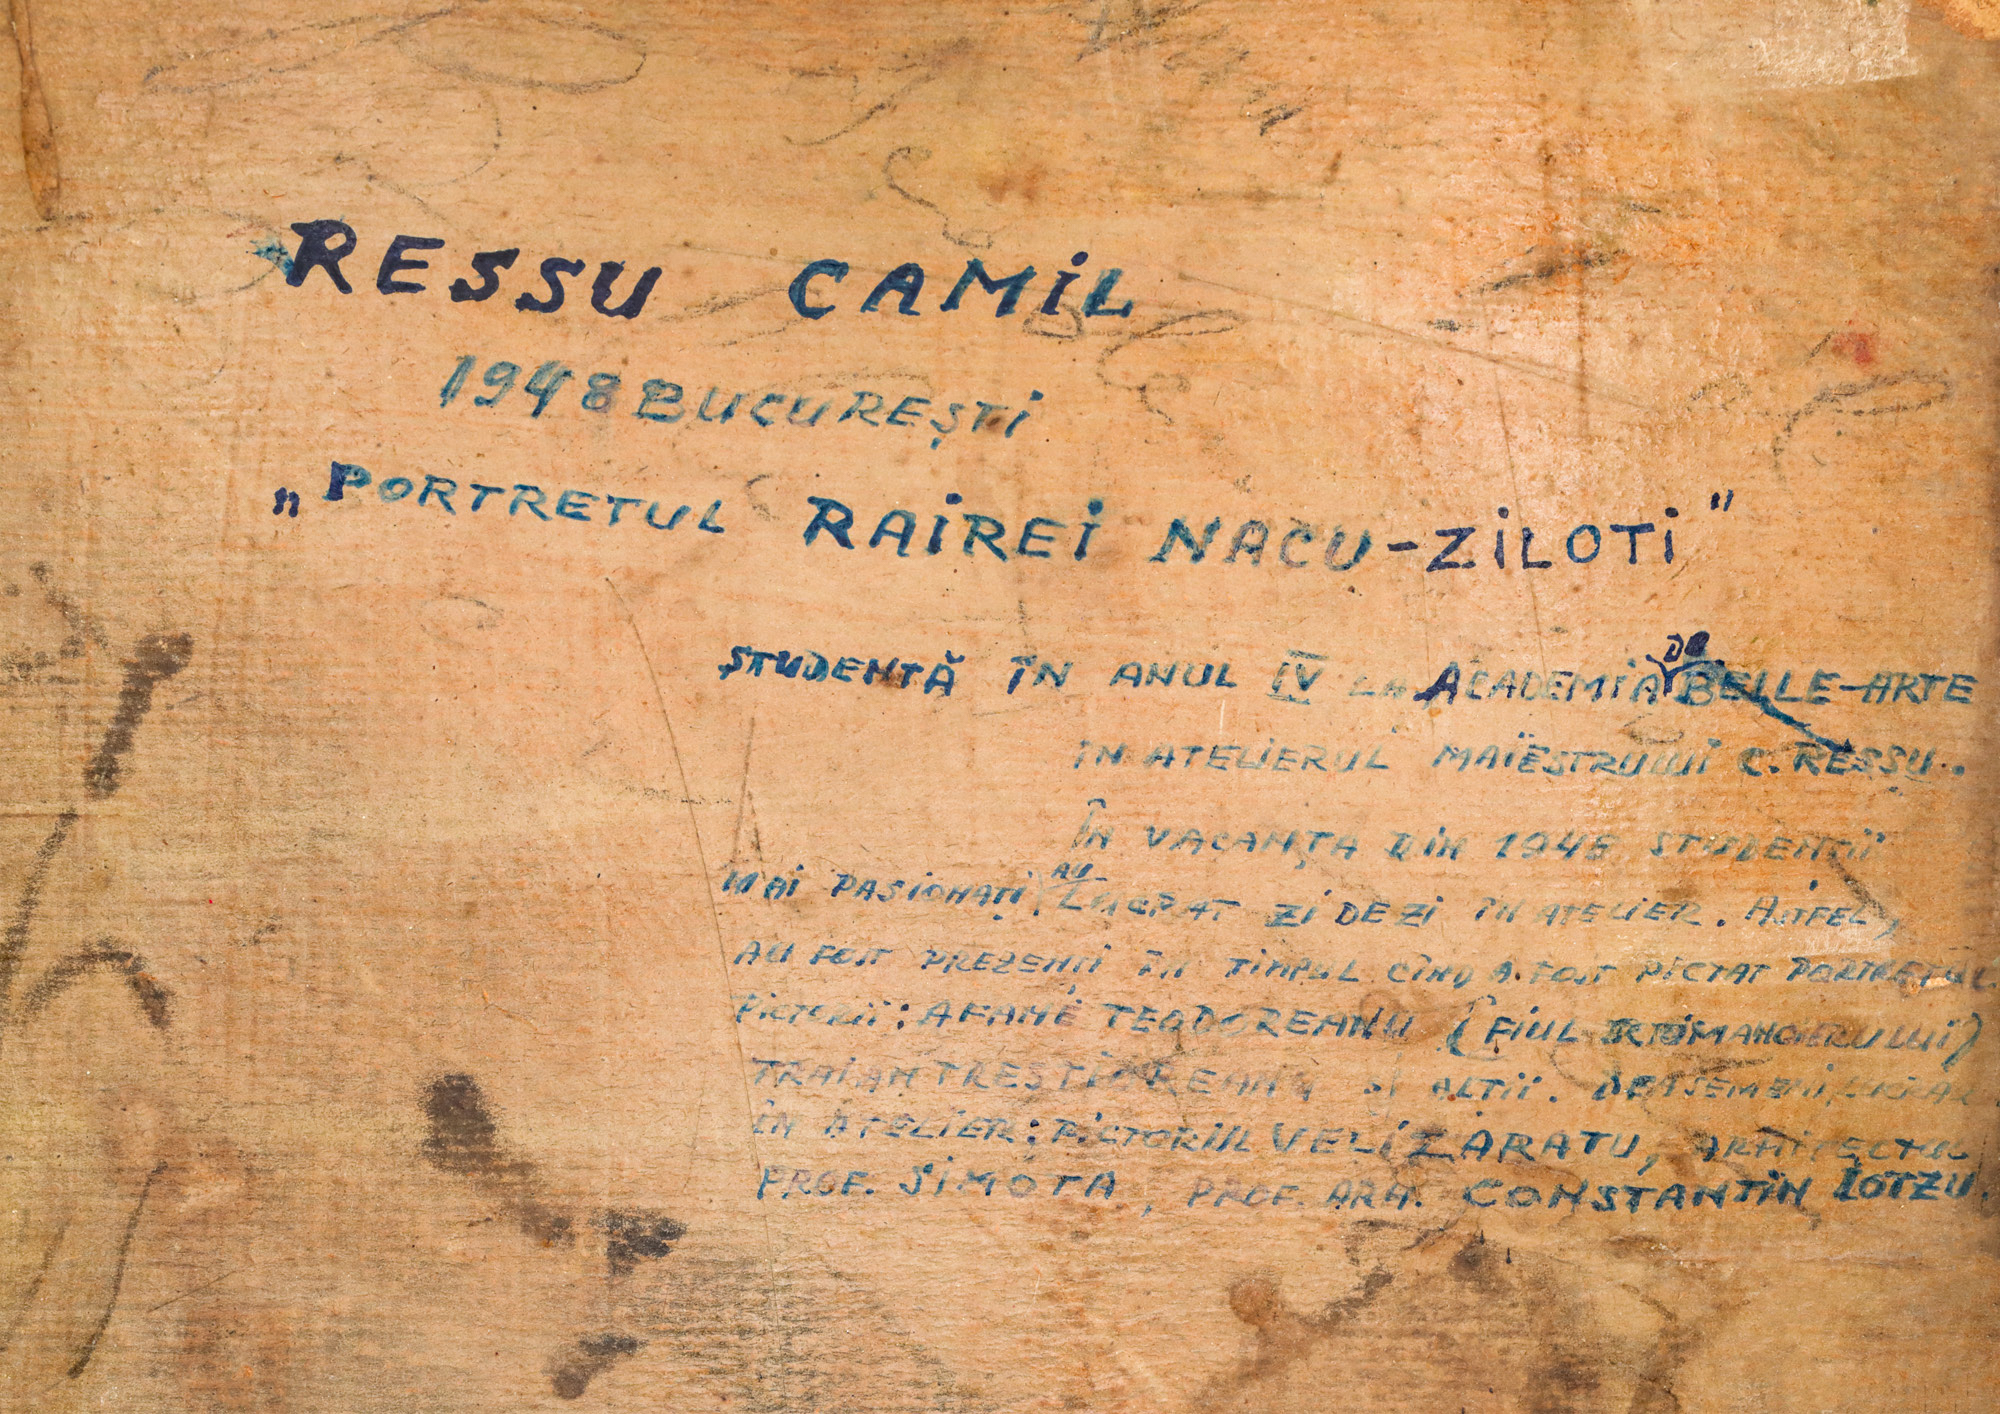 RESSU CAMIL
1948 BUCUREȘTI
„PORTRETUL RAIREI NACU-ZILOTI"
STUDENTĂ ÎN ANUL IV LA ACADEMIA DE BELLE-ARTE
IN ATELIERUL MAÏESTRULUI C. RESSU.
ÎN VACANȚA DIN 1948 STUDENȚII
MAI PASIONAȚI, AU LUCRAT ZI DE ZI ÎN ATELIER. ASTFEL,
AU FOST PREZENȚI ÎN TIMPUL CÎND A FOST PICTAT PORTRETUL
PICTORII: AFANE TEODOREANU (FIUL ROMANCIERULUI)
TRAIAN TRESTIOREANU ȘI ALȚII. DEASEMENI, LUCRAU
ÎN ATELIER: PICTORIUL VELIZARATU, ARHITECTUL
PROF. SIMOTA, PROF. ARH. CONSTANTIN IOTZU.